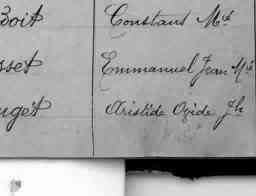 Boit Constant Md
sset Emmanuel Jean Md
uget Aristide Ovide fls